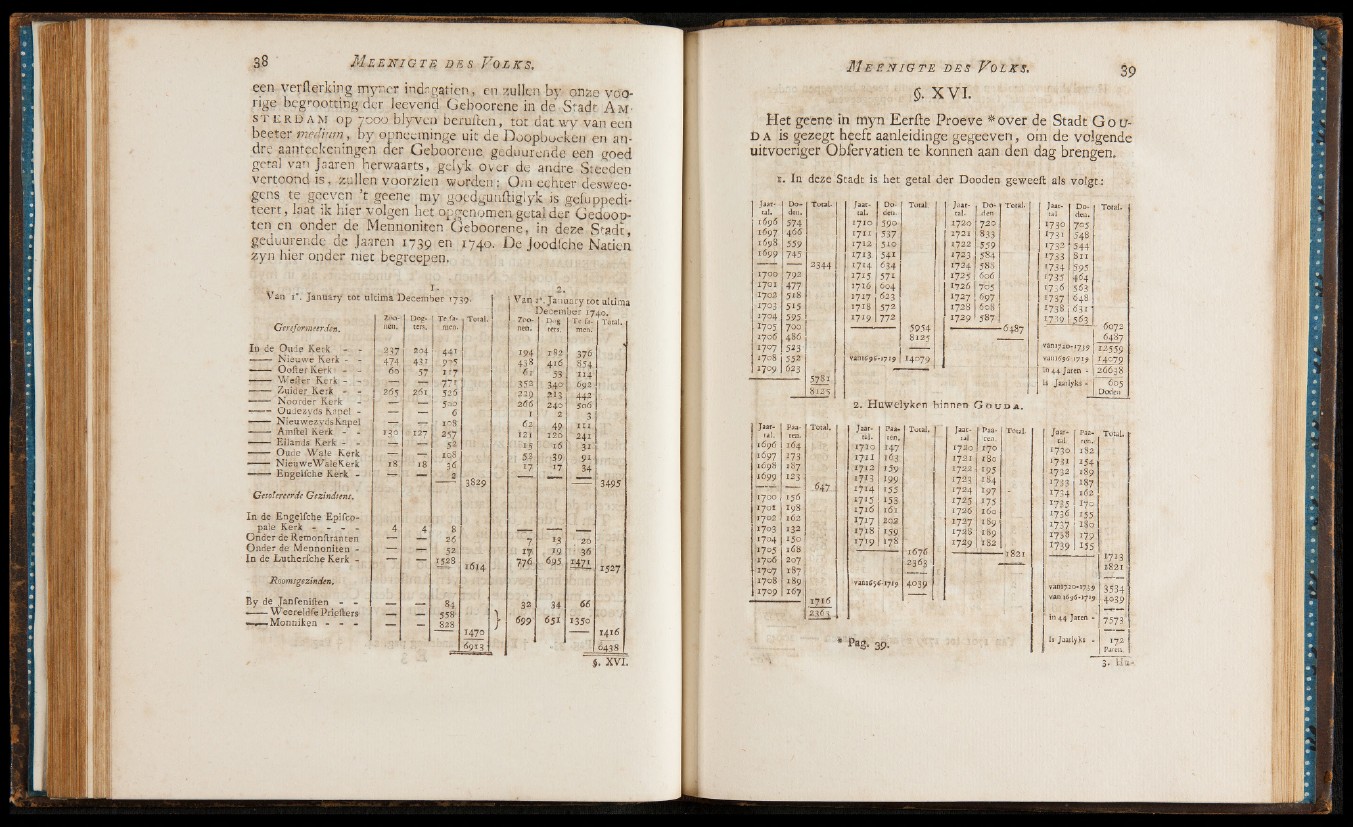 38 MEENIGTE DES VOLKS.
een verſterking myner indagatien, en zullen by onze voo-
rige begrootting der leevend Geboorene in de Stadt AM-
STERDAM op 7000 blyven beruſten, tot dat wy van een
beeter medium, by opneeminge uit de Doopboeken en an-
dre aanteekeningen der Geboorene geduurende een goed
getal van Jaaren herwaarts, gelyk over de andre Steeden
vertoond is, zullen voorzien worden: Om echter deswee-
gens te geeven 't geene my goedgunſtiglyk is geſuppedi-
teert, laat ik hier volgen het opgenomen getal der Gedoop-
ten en onder de Mennoniten Geboorene, in deze Stadt,
geduurende de Jaaren 1739 en 1740. De Joodſche Natien
zyn hier onder niet begreepen.
1.
Van 1°. January tot ultima December 1739.
Gereformeerden. Zoo-nen. Dog-ters. Te ſa-men. Total.
In de Oude Kerk - - 237 204 441
—— Nieuwe Kerk - - 474 431 905
—— Ooſter Kerk - - 60 57 117
—— Weſter Kerk - - — — 771
—— Zuider Kerk - 265 261 526
—— Noorder Kerk - — — 520
—— Oudezyds Kapel - — — 6
—— Nieuwezyds Kapel — — 108
—— Amſtel Kerk - - 130 127 257
—— Eilands Kerk - - — — 52
—— Oude Wale Kerk — — 108
—— NieuweWaleKerk 18 18 36
—— Engelſche Kerk - — — 2
3829
Getolereerde Gezindtens.
In de Engelſche Epiſco-
pale Kerk - - - - 4 4 8
Onder de Remonſtranten — — 26
Onder de Mennoniten - — — 52
In de Lutherſche Kerk - 1528 1614
Roomsgezinden.
By de Janſeniſten - - — — 84
—— Weereldſe Prieſters — — 558
—— Monniken - - - — — 828
1470
6913
2.
Van 1°. January tot ultima
December 1740.
Zoo-nen. Dog-ters. Te ſa-men. Total.
194 182 376
438 416 854
61 53 114
352 340 692
229 213 442
266 240 506
1 2 3
62 49 111
121 120 241
15 16 31
52 39 91
17 17 34
— — —
3495
— — —
7 13 20
17 19 36
776 695 1471 1527
32 34 66
} 699 651 1350
1416
6438
§. XVI.
MEENIGTE DES VOLKS. 39
§. XVI.
Het geene in myn Eerſte Proeve * over de Stadt GOU-
DA is gezegt heeft aanleidinge gegeeven, om de volgende
uitvoeriger Obſervatien te konnen aan den dag brengen.
1. In deze Stadt is het getal der Dooden geweeſt als volgt:
Jaar-tal. Do-den. Total.
1696 574
1697 466
1698 559
1699 745
—— —— 2344
1700 792
1701 477
1702 518
1703 515
1704 595
1705 700
1706 486
1707 523
1708 552
1709 623
5781
8125
Jaar-tal. Do-den. Total.
1710 590
1711 537
1712 510
1713 541
1714 634
1715 571
1716 604
1717 623
1718 572
1719 772
5954
8125
van1696-1719 14079
Jaar-tal. Do-den. Total.
1720 720
1721 833
1722 559
1723 584
1724 588
1725 606
1726 705
1727 697
1728 608
1729 587
6487
Jaar-tal Do-den. Total.
1730 705
1731 548
1732 544
1733 811
1734 595
1735 464
1736 563
1737 648
1738 631
1739 563
6072
6487
van1720-1739 12559
van1696-1719 14079
in 44 Jaren - 26638
is Jaarlyks - 605
Dooden
2. Huwelyken binnen GOUDA.
Jaar-tal. Paa-ren. Total.
1696 164
1697 173
1698 187
1699 123
—— —— 647
1700 156
1701 198
1702 162
1703 132
1704 150
1705 168
1706 207
1707 187
1708 189
1709 167
1716
2363
Jaar-tal. Paa-ren. Total.
1720 147
1711 163
1712 159
1713 199
1714 155
1715 153
1716 161
1717 202
1718 159
1719 178
1676
2363
van1696-1719 4039
Jaar-tal Paa-ren. Total.
1720 170
1721 180
1722 195
1723 184
1724 197
1725 175
1726 160
1727 189
1728 189
1729 182
1821
Jaar-tal. Paa-ren. Total.
1730 182
1731 154
1732 189
1733 187
1734 162
1735 170
1736 155
1737 180
1738 179
1739 155
1713
1821
van1720-1739 3534
van 1696-1719 4039
in 44 Jaren - 7573
Is Jaarlyks - 172
Paren.
* Pag. 39.
3. Hu-